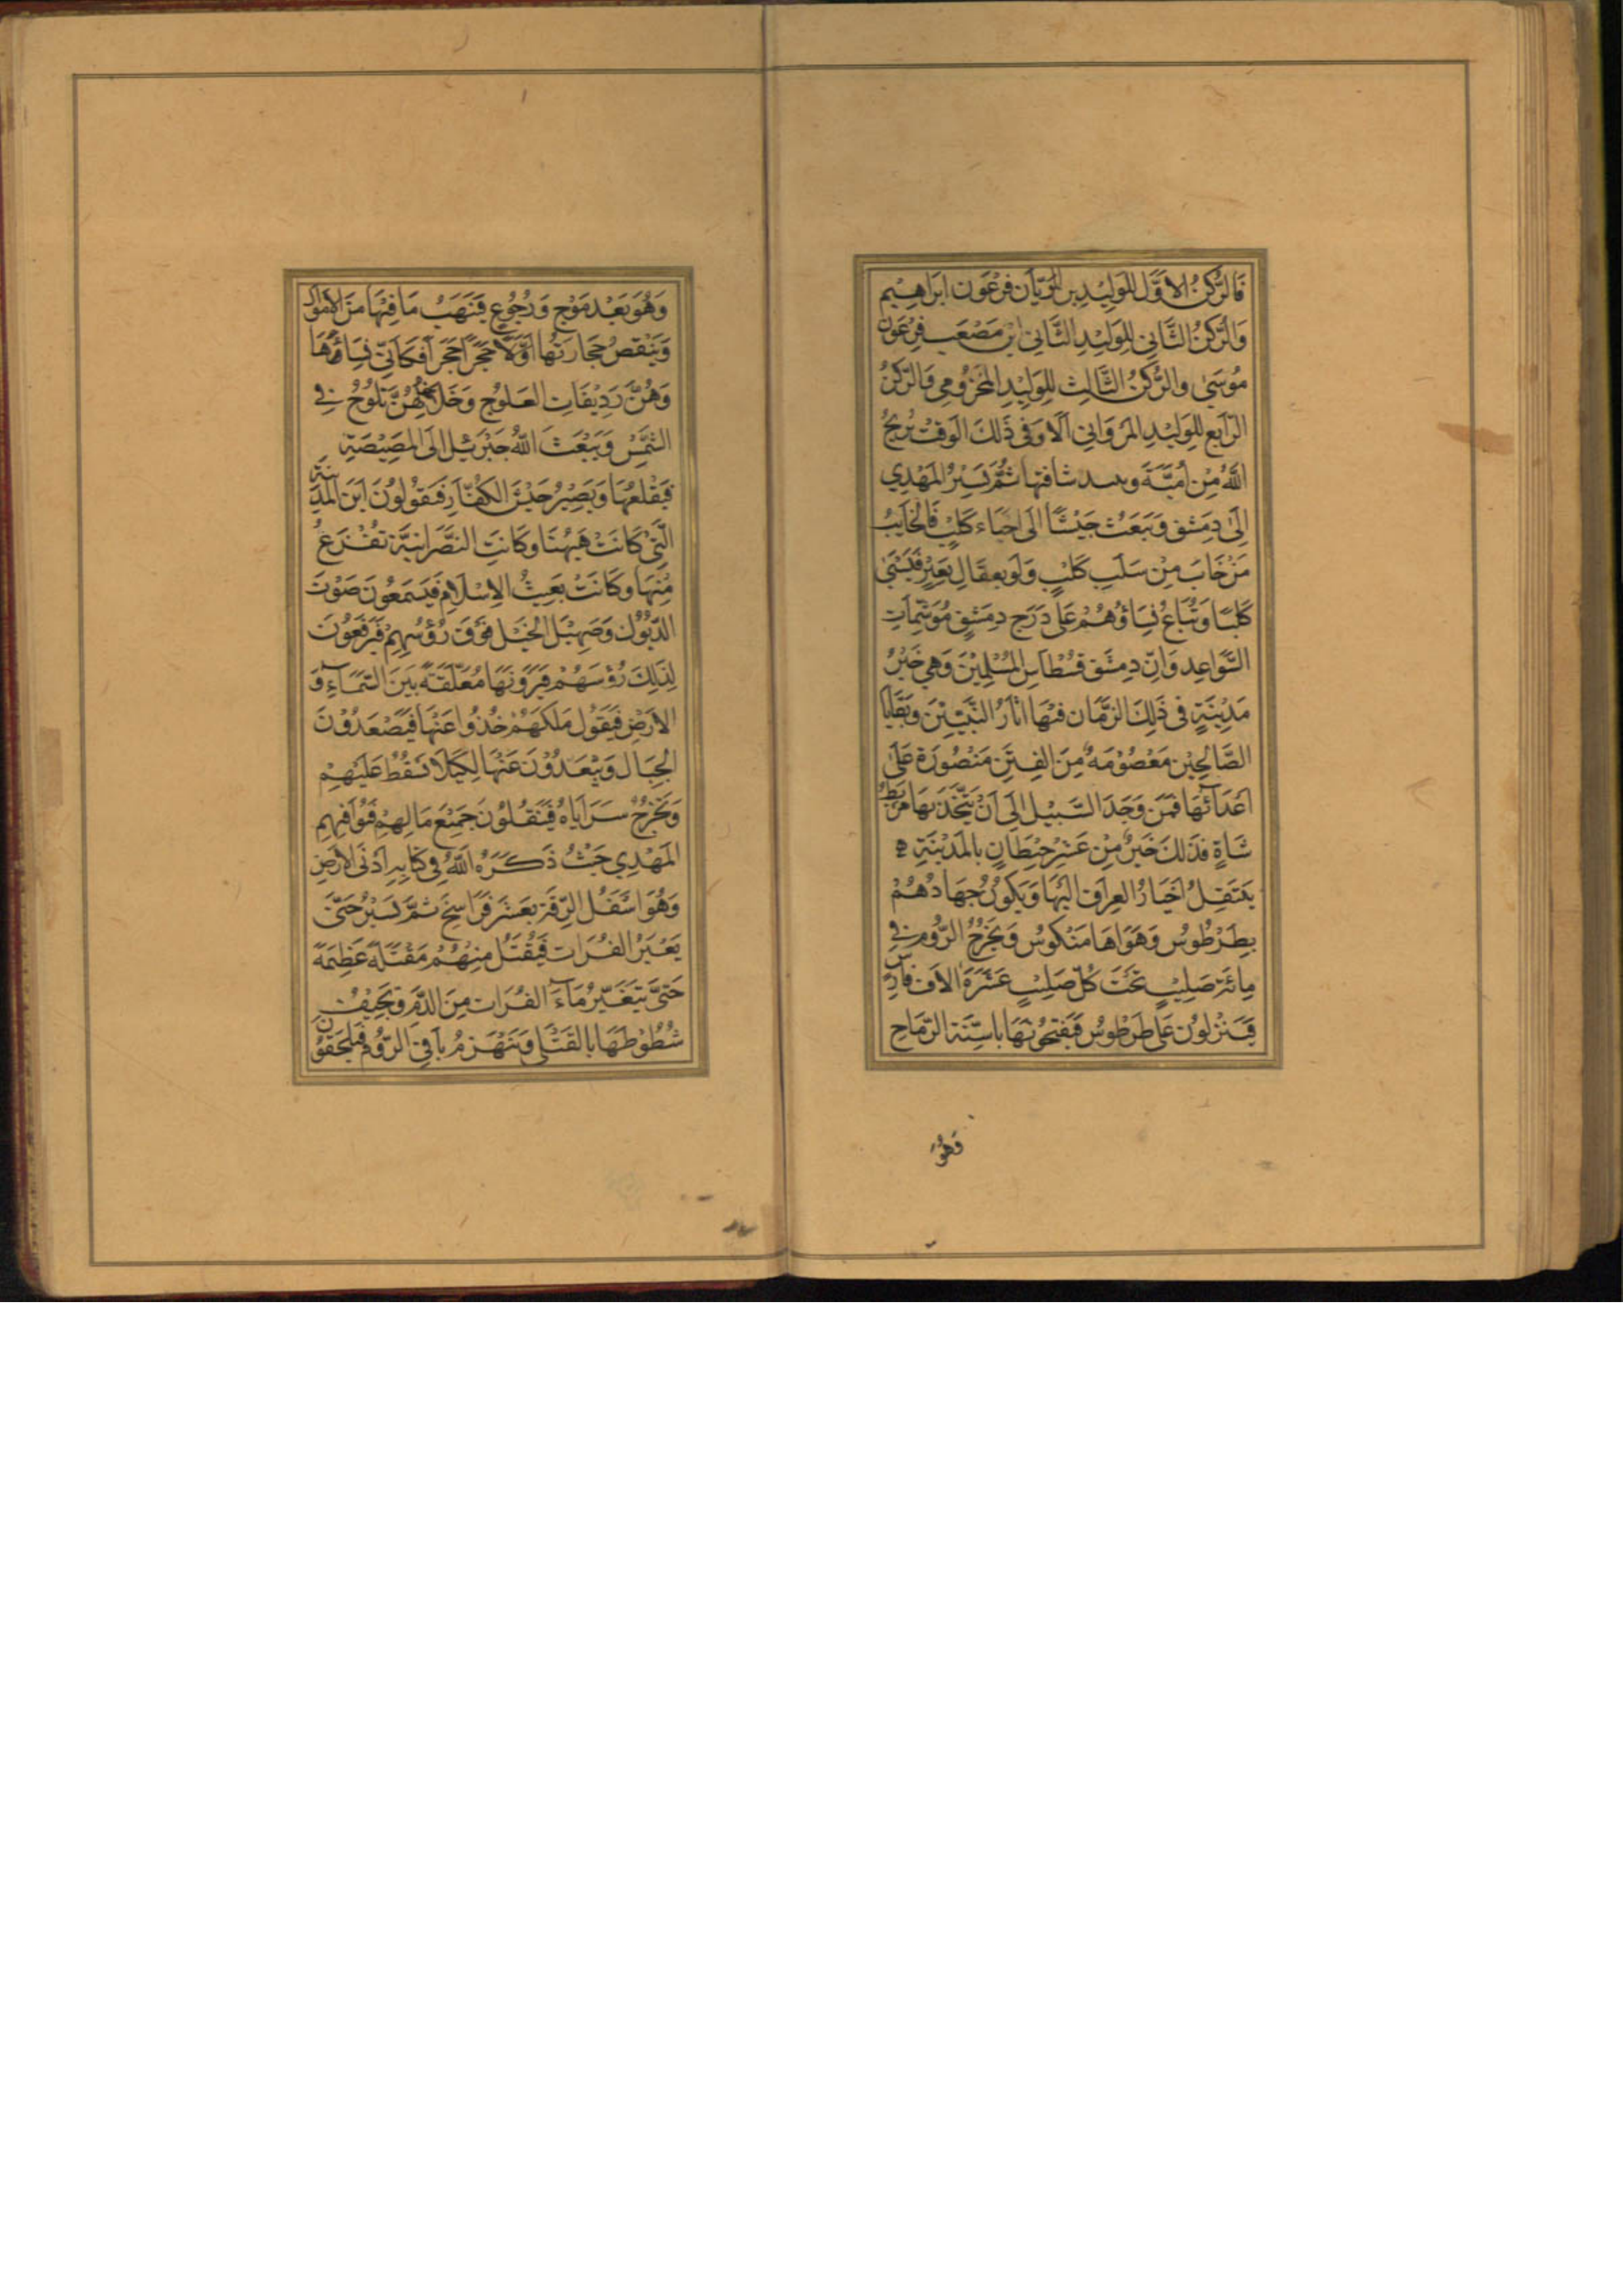 فَالرُّكنُ الاَوَّل لِلوَلِيْدِ بن الرَّيَّان فِرعَون ابرَاهِيم
وَالرُّكنُ الثَّانِي لِلوَلِيْدِ الثَّانِي ابن مَصْعَب فِرعَون
مُوسَى والرُّكنُ الثَّالِث لِلوَلِيْدِ المَخزُومِي وَالرُّكنُ
الرَّابِع لِلوَلِيْدِ المَروَانِي اَلَا وَفي ذَلِكَ الوَقت يُريحُ
اللهُ مِن اُمَيَّةَ شافتها ثُمَّ يَسِيْرُ المَهْدِي
اِلَى دِمَشق وَيَبعَثُ جَيْشًا اِلَى احيَاء كَلْبٍ فَالخَايبُ
مَنْ خَابَ مِنْ سَلَبِ كَلْبٍ وَلَو بِعِقَالِ بَعِيْرٍ فَيَسْبَى
كَلْبًا وَتُبَاعُ نِسَاؤُهُمْ عَلَى دَرَج دِمَشق مُوَشَّمَاتِ
السَّوَاعِد وَاِنّ دِمَشق فُسْطَاس المُسْلِمِيْنَ وَهِي خَيْرُ
مَدِيْنَةٍ فِي ذَلِكَ الزَّمَان فِيْهَا اثَارُ النَّبِيِّيْنَ وَبَقَايَا
الصَّالِحِيْن مَعْصُوْمَهٌ مِنَ الفِتَنِ مَنْصُوْرَة عَلَى
اَعْدَآئِهَا فَمَن وَجَدَ السَّبِيْل اِلَى اَنْ يَتَّخِذَ بِهَا مَربَط
شَاةٍ فَذَلِكَ خَيْرٌ مِنْ عَشْرِ حِيْطَانٍ بِالمَدِيْنَةِ
يَنتَقِلُ اَخيَارُ العِرَاق اِلَيْهَا وَيَكُوْنُ جِهَادُهُمْ
بِطَرْطُوْس وَهَوَاهَا مَنكُوس وَيَخرُجُ الرُّوم فِي
مِائَة صَلِيْبٍ تَحْتَ كُلِّ صَلِيْبٍ عَشَرَةَ الاَف فَارِس
فَيَنزِلُوْن عَلى طَرْطُوْس فَيَفتَحُوْنَهَا بِاَسِنَّةِ الرِّمَاحِ
فَهُوَ
وَهُوَ بَعْد مَوْج وَرُجُوْع فَيَنْهَبُ مَا فِيْهَا مِنَ الاَموَال
وَيَنْقَضُ حِجَارَتُهَا اَوَّلًا حَجَرًا حَجَرًا فَكَاَنّي نِسَاؤُهَا
وَهُنَّ رَدِيْفَاتِ العَلوج وَخَلَاخِلُهُنَّ تَلُوْحُ فِي
الشَّمْسِ وَيَبْعَثَ اللهُ جَبْرَئِيْل اِلَى المَصِيْصَةِ
فَيَقْلَعُهَا وَيَصِيْرُ جَيْش الكُفَّار فَيَقُوْلُوْنَ اَيْنَ المَدِيْنَة
الَّتِي كَانَتْ هَيهُنَا وَكَانَتِ النَّصْرَانِيَّة تَفْزَعُ
مِنْهَا وَكَانَتْ بَعِيثُ الاِسْلَامِ فَيَسْمَعُوْنَ صَوْتَ
الدُّيُوْكِ وَصَهِيْلَ الخَيْلِ فَوْقَ رُؤُسِهِمْ فَيَرْفَعُوْنَ
لِذَلِكَ رُؤُسَهُمْ فَيَرَوْنَهَا مُعَلَّقَةً بَيْنَ السَّمَاءِ وَ
الاَرْضِ فَيَقُوْلُ مَلِكُهُمْ خُذُوا عَنْهَا فَيَصْعَدُوْنَ
الجِبَال وَيَبْعَدُوْنَ عَنْهَا لِكَيْلَا تَسْقُطُ عَلَيْهِمْ
وَيَخْرُجُ سَرَايَاهُ فَيَنْقُلُوْنَ جَمِيْعَ مَالِهِمْ فَيُوَافِيْهِم
المَهْدِي حَيْثُ ذَكَرَهُ اللهُ فِي كِتَابِهِ اَدْنَى الاَرْضِ
وَهُوَ اَسْفَلُ الرِّقَة بِعَشَر فَرَاسِخَ ثُمَّ يَسِيْرُ حَتَّى
يَعْبُرُ الفُرَات فَيُقْتَلُ مِنْهُمْ مَقْتَلَةً عَظِيْمَةً
حَتَّى يَتَغَيَّرُ مَاءَ الفُرَات مِنَ الدَّمِ وَتَجِيْفُ
شُطُوْطُهَا بِالقَتْلَى وَيَنْهَزِمُ بَاقِيَ الرُّوْم فَيَلْحَقُوْن